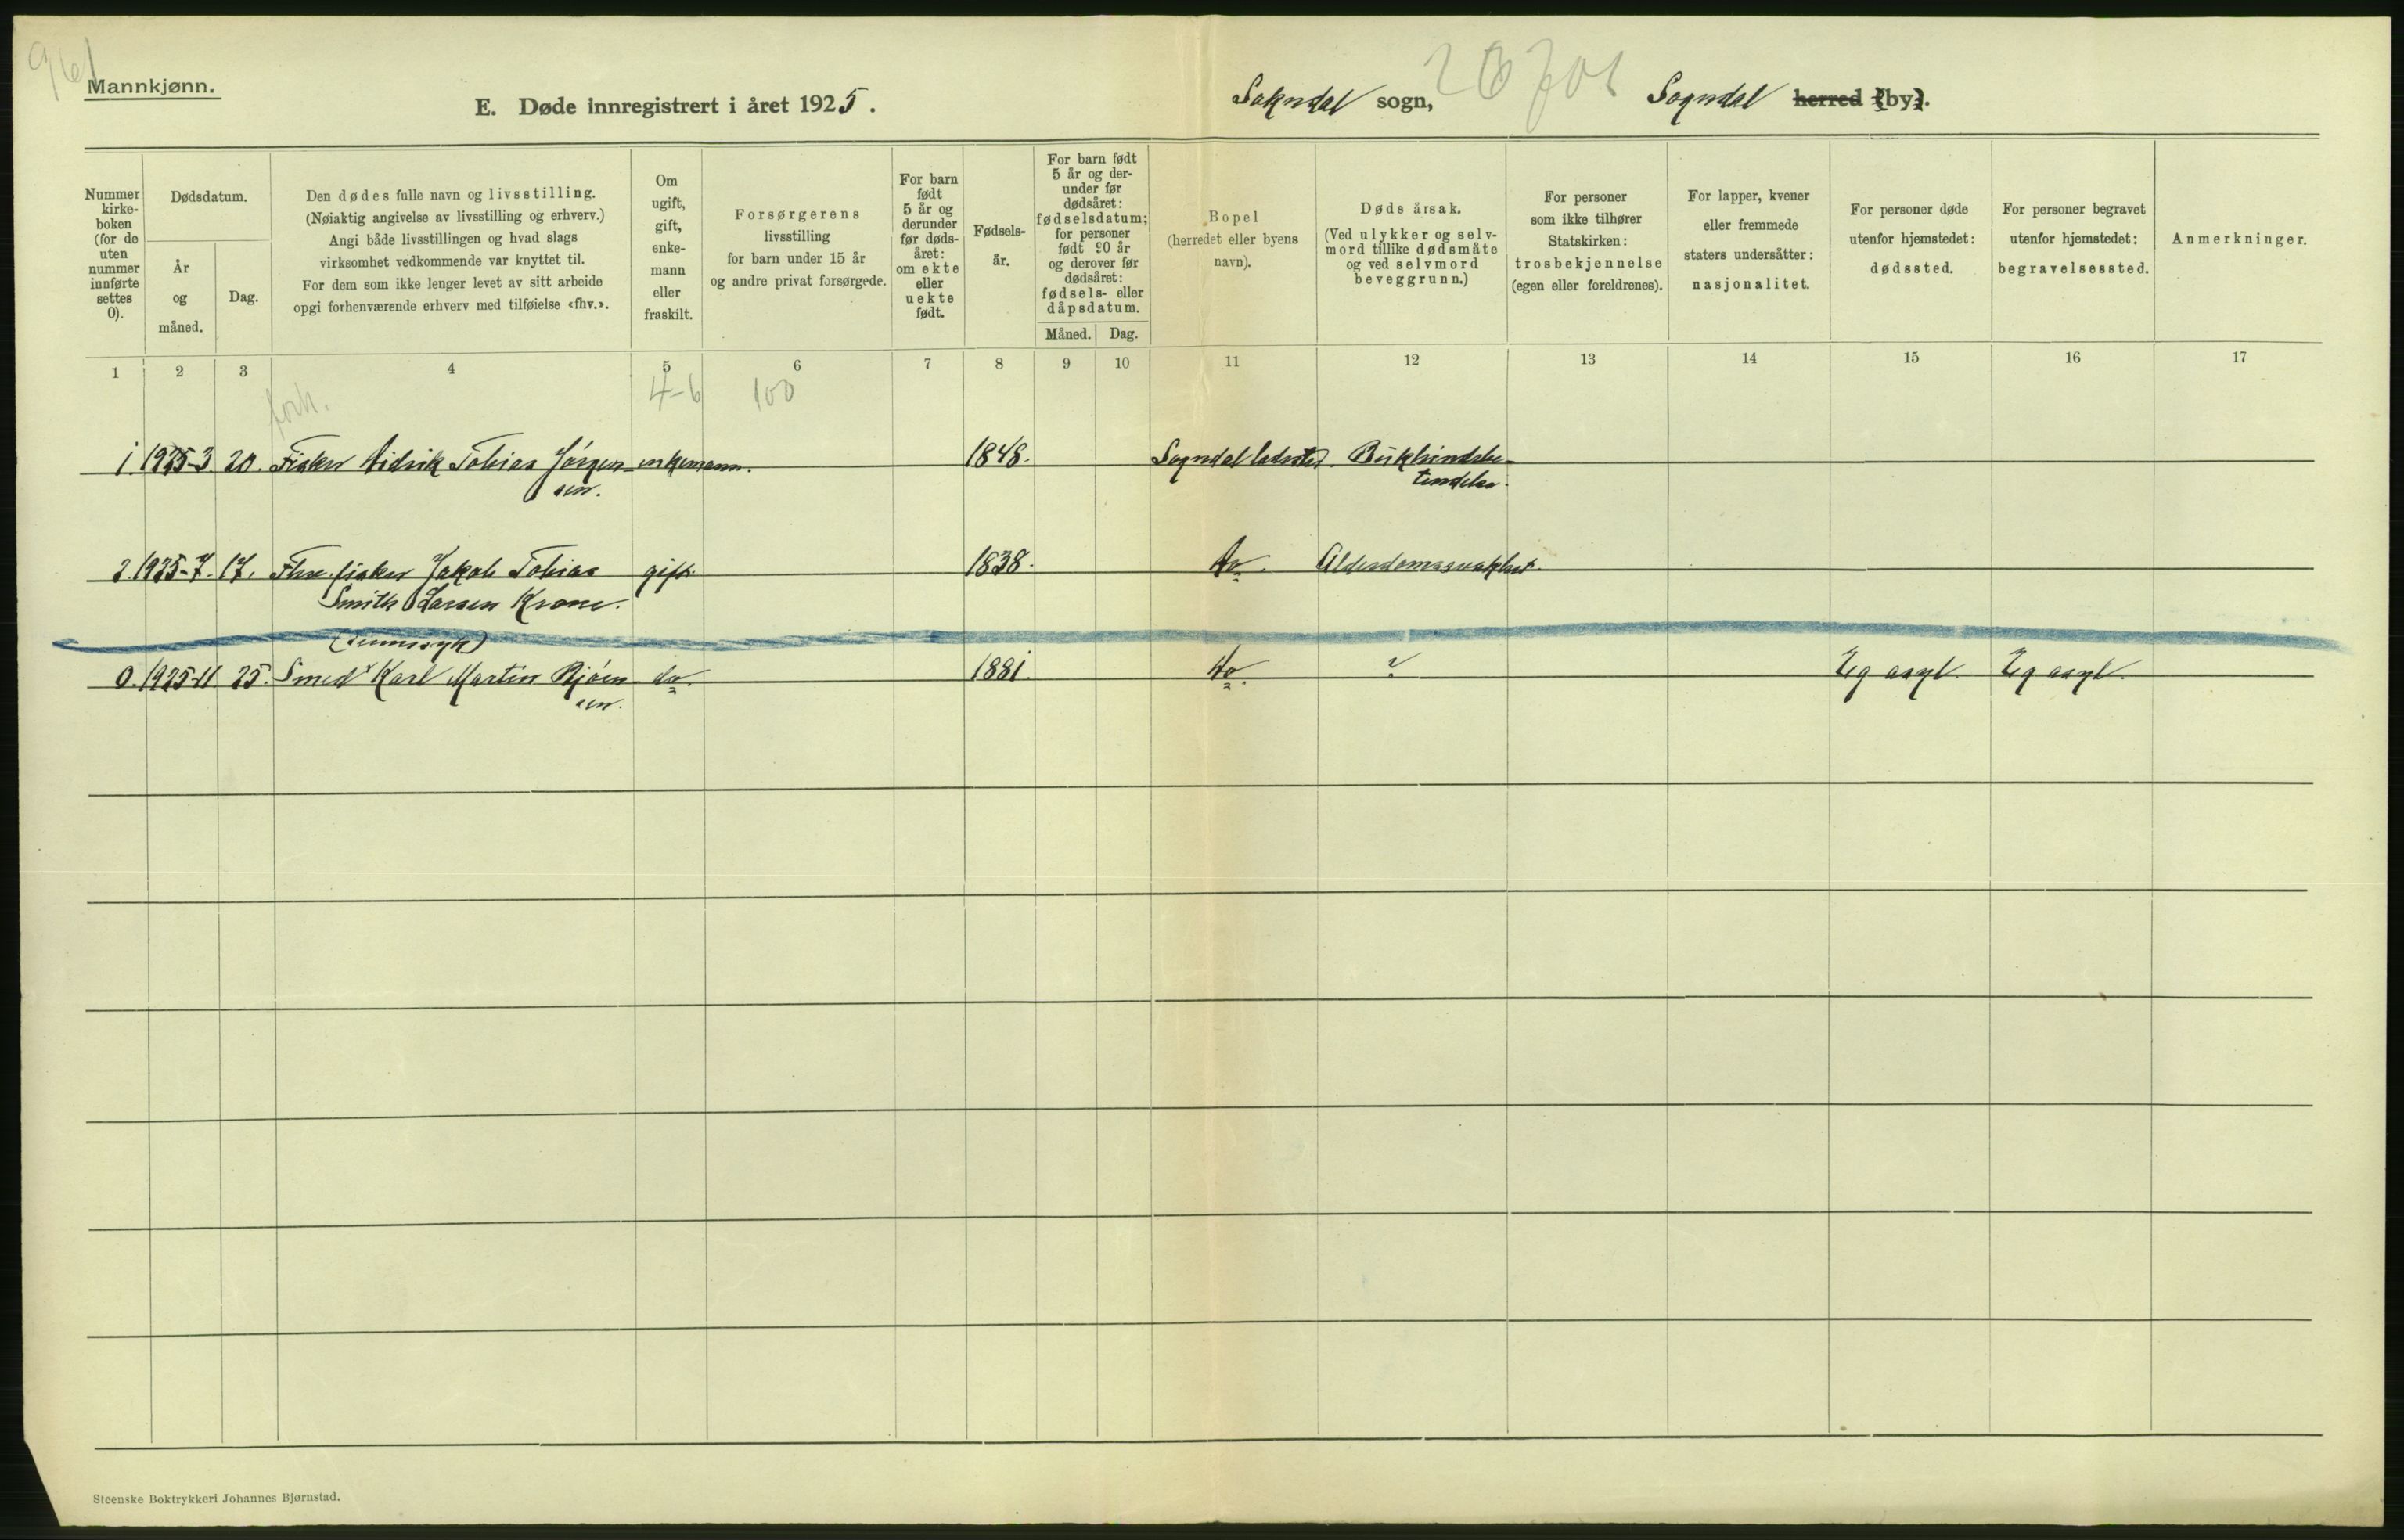 961
Mannkjønn.
E. Døde innregistrert i året 1925.
Sokndal sogn,
Sogndal herred (by).
Nummer kirke-boken (for de uten nummer innførte settes 0).
Dødsdatum.
År og måned.
Dag.
Den dødes fulle navn og livsstilling.
(Nøiaktig angivelse av livsstilling og erhverv.)
Angi både livsstillingen og hvad slags
virksomhet vedkommende var knyttet til.
For dem som ikke lenger levet av sitt arbeide
opgi forhenværende erhverv med tilføielse «fhv.».
Om ugift, gift, enke-mann eller fraskilt.
Forsørgerens
livsstilling
for barn under 15 år
og andre privat forsørgede.
For barn født 5 år og derunder før døds-året: om ekte eller uekte født.
Fødsels-år.
For barn født 5 år og der-under før dødsåret: fødselsdatum; for personer født 90 år og derover før dødsåret: fødsels- eller dåpsdatum.
Måned.
Dag.
Bopel
(herredet eller byens
navn).
Dødsårsak.
(Ved ulykker og selv-
mord tillike dødsmåte
og ved selvmord
beveggrunn.)
For personer
som ikke tilhører
Statskirken:
trosbekjennelse
(egen eller foreldrenes).
For lapper, kvener
eller fremmede
staters undersåtter:
nasjonalitet.
For personer døde
utenfor hjemstedet:
dødssted.
For personer begravet
utenfor hjemstedet:
begravelsessted.
Anmerkninger.
1 2 3 4 5 6 7 8 9 10 11 12 13 14 15 16 17
forh. 4-6 100
1. 1925-3. 20. Fisker Didrik Tobias Jørgen- enkemann. 1848. Sogndal ladested. Bukhindebe-
sen. tendelse.
2. 1925-7. 17. Fhv. fisker Jakob Tobias gift. 1838. do. Alderdomssvakhet.
Smith Larsen Krone.
(sinnssyk)
0. 1925-11. 25. Smed Karl Martin Bjørn- do. 1881. do. ? Eg asyl. Eg asyl.
sen.
Steenske Boktrykkeri Johannes Bjørnstad.